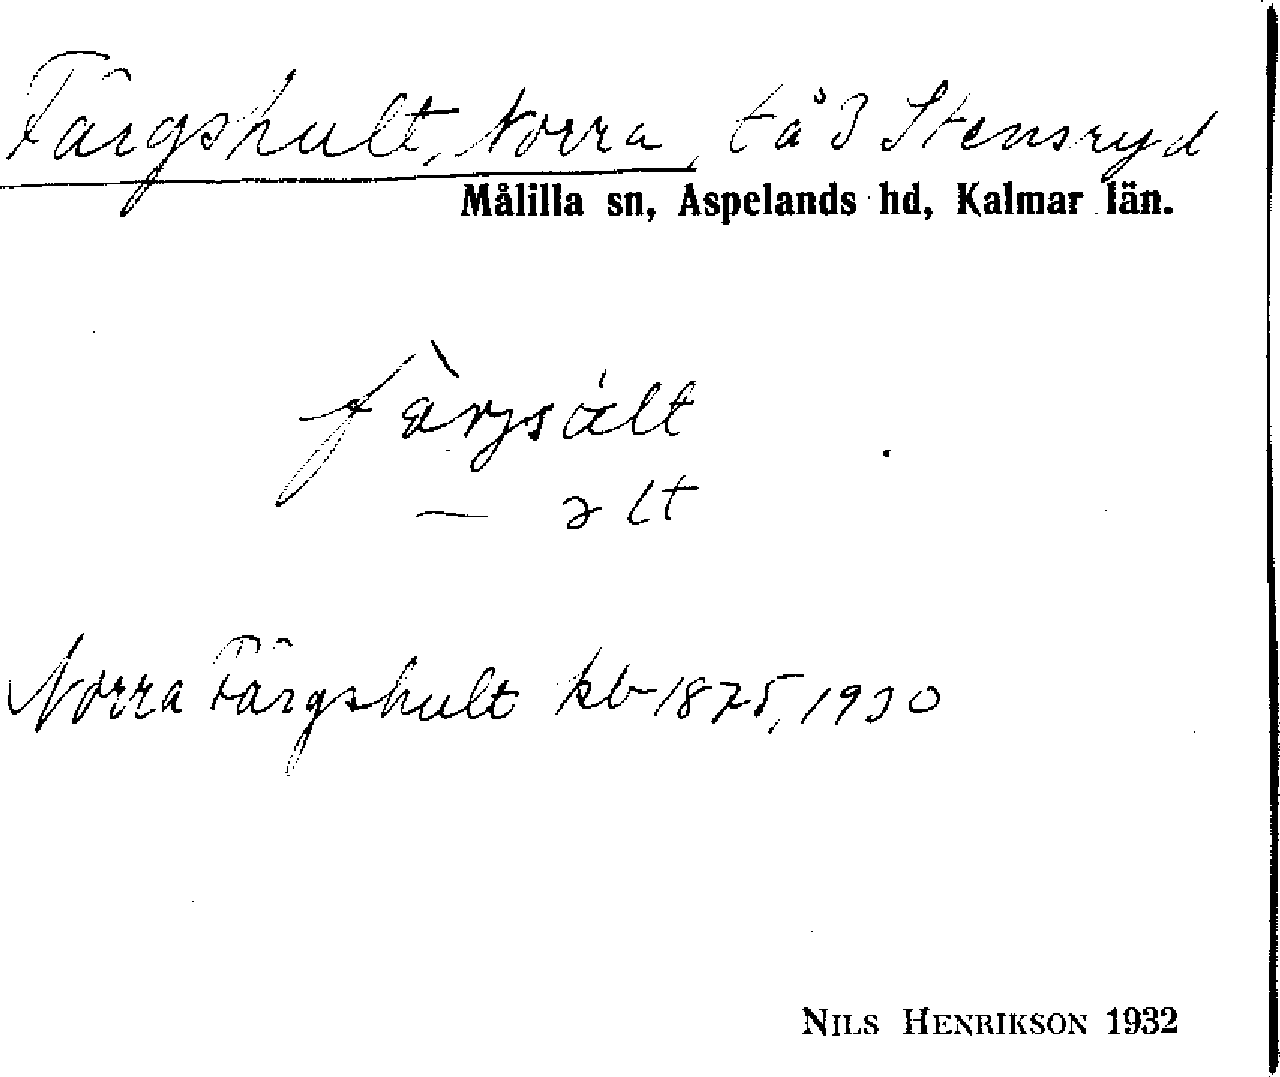 Färgshult, Norra, t å 3 Stensryd
Målilla sn, Aspelands hd, Kalmar län.
— əlt
Norra Färgshult kb 1875, 1930
NILS HENRIKSON 1932